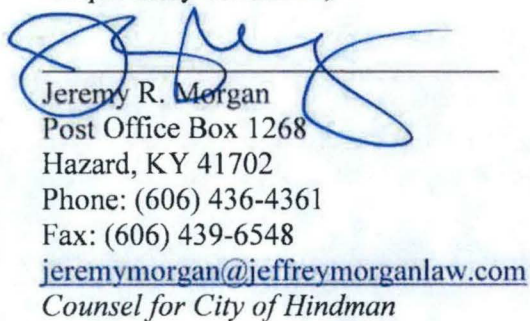 Jeremy R. Morgan
Post Office Box 1268
Hazard, KY 41702
Phone: (606) 436-4361
Fax: (606) 439-6548
jeremymorgan@jeffreymorganlaw.com
Counsel for City of Hindman